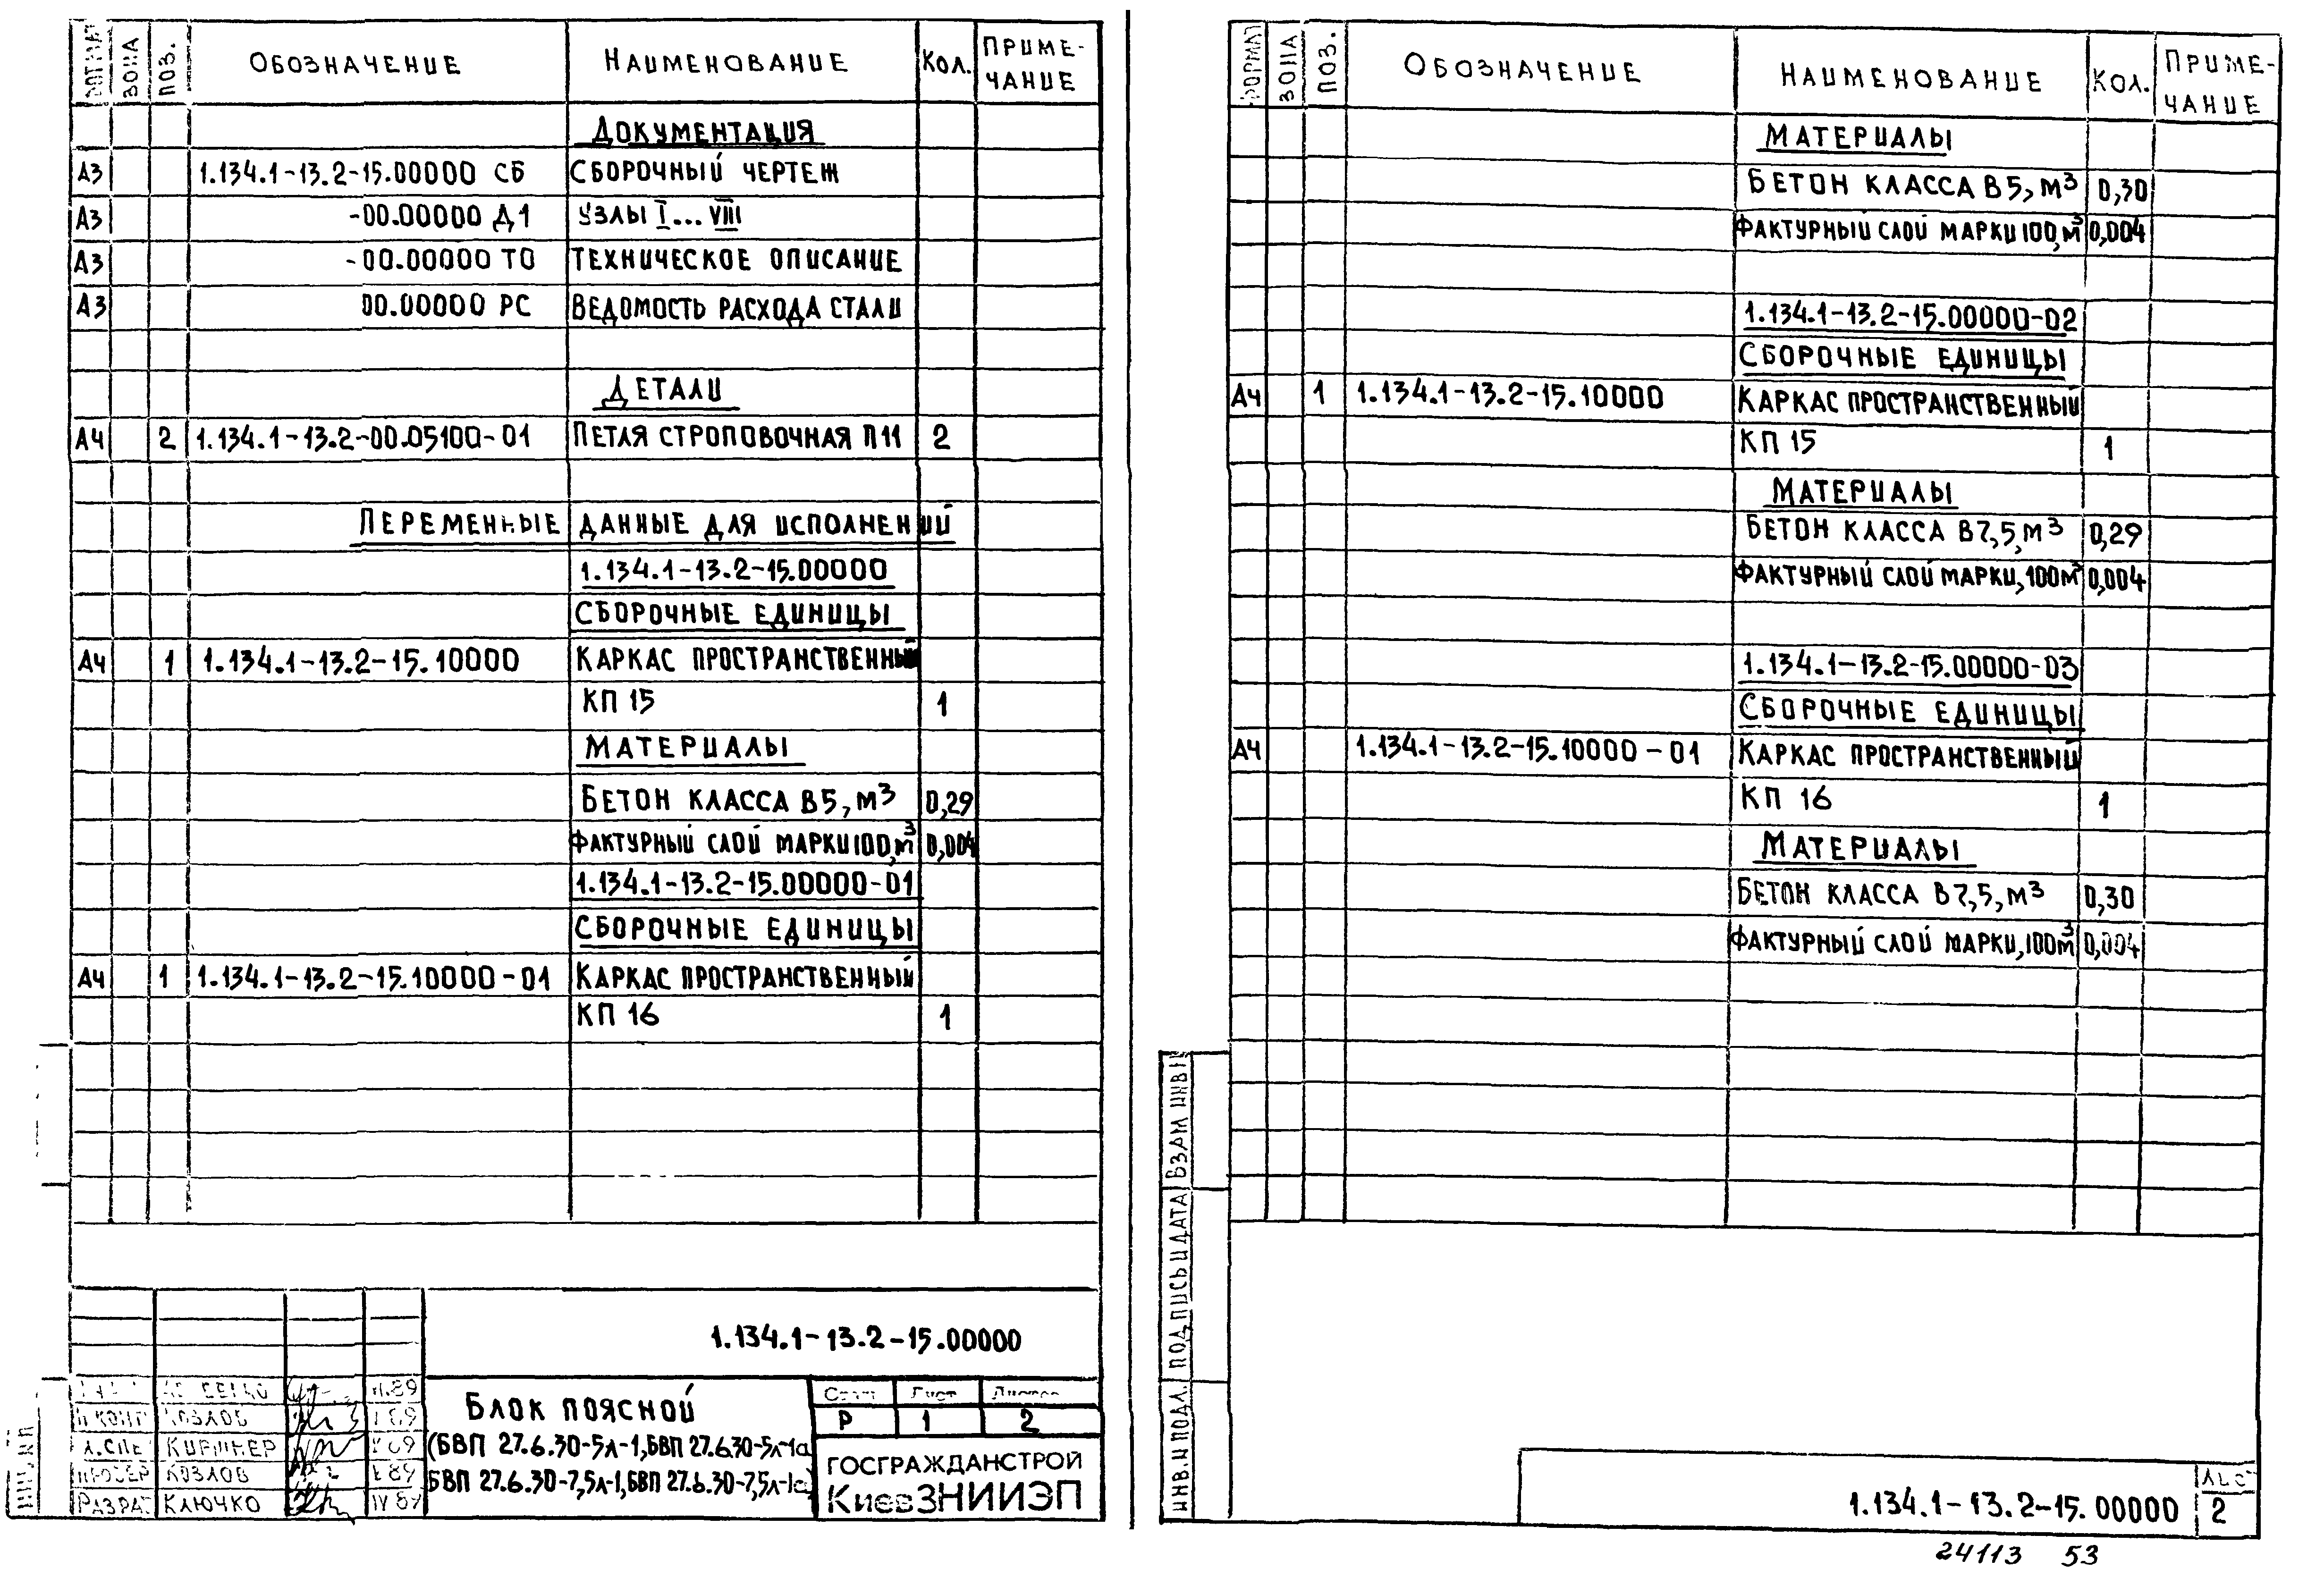 ФОРМАТ ЗОНА ПОЗ. ОБОЗНАЧЕНИЕ НАИМЕНОВАНИЕ КОЛ. ПРИМЕ-
ЧАНИЕ
ДОКУМЕНТАЦИЯ
А3 1.134.1-13.2-15.00000 СБ СБОРОЧНЫЙ ЧЕРТЕЖ
А3 -00.00000 Д1 УЗЛЫ I...VIII
А3 -00.00000 ТО ТЕХНИЧЕСКОЕ ОПИСАНИЕ
А3 00.00000 РС ВЕДОМОСТЬ РАСХОДА СТАЛИ
ДЕТАЛИ
А4 2 1.134.1-13.2-00.05100-01 ПЕТЛЯ СТРОПОВОЧНАЯ П11 2
ПЕРЕМЕННЫЕ ДАННЫЕ ДЛЯ ИСПОЛНЕНИЙ
1.134.1-13.2-15.00000
СБОРОЧНЫЕ ЕДИНИЦЫ
А4 1 1.134.1-13.2-15.10000 КАРКАС ПРОСТРАНСТВЕННЫЙ
КП 15 1
МАТЕРИАЛЫ
БЕТОН КЛАССА В5, М³ 0,29
ФАКТУРНЫЙ СЛОЙ МАРКИ 100, М³ 0,004
1.134.1-13.2-15.00000-01
СБОРОЧНЫЕ ЕДИНИЦЫ
А4 1 1.134.1-13.2-15.10000-01 КАРКАС ПРОСТРАНСТВЕННЫЙ
КП 16 1
1.134.1-13.2-15.00000
КОЗЛОВ
КИРШНЕР
КОЗЛОВ
РАЗРАБ КЛЮЧКО IV 89
БЛОК ПОЯСНОЙ
(БВП 27.6.30-5л-1, БВП 27.6.30-5л-1а
БВП 27.6.30-7,5л-1, БВП 27.6.30-7,5л-1а)
Лист Листов
Р 1 2
ГОСГРАЖДАНСТРОЙ
КиевЗНИИЭП
ФОРМАТ ЗОНА ПОЗ. ОБОЗНАЧЕНИЕ НАИМЕНОВАНИЕ КОЛ. ПРИМЕ-
ЧАНИЕ
МАТЕРИАЛЫ
БЕТОН КЛАССА В5, М³ 0,30
ФАКТУРНЫЙ СЛОЙ МАРКИ 100, М³ 0,004
1.134.1-13.2-15.00000-02
СБОРОЧНЫЕ ЕДИНИЦЫ
А4 1 1.134.1-13.2-15.10000 КАРКАС ПРОСТРАНСТВЕННЫЙ
КП 15 1
МАТЕРИАЛЫ
БЕТОН КЛАССА В7,5, М³ 0,29
ФАКТУРНЫЙ СЛОЙ МАРКИ, 100М³ 0,004
1.134.1-13.2-15.00000-03
СБОРОЧНЫЕ ЕДИНИЦЫ
А4 1.134.1-13.2-15.10000-01 КАРКАС ПРОСТРАНСТВЕННЫЙ
КП 16 1
МАТЕРИАЛЫ
БЕТОН КЛАССА В7,5, М³ 0,30
ФАКТУРНЫЙ СЛОЙ МАРКИ, 100М³ 0,004
ИНВ.И ПОДЛ. ПОДПИСЬ И ДАТА ВЗАМ ИНВ
1.134.1-13.2-15.00000
ЛИСТ
2
24113 53